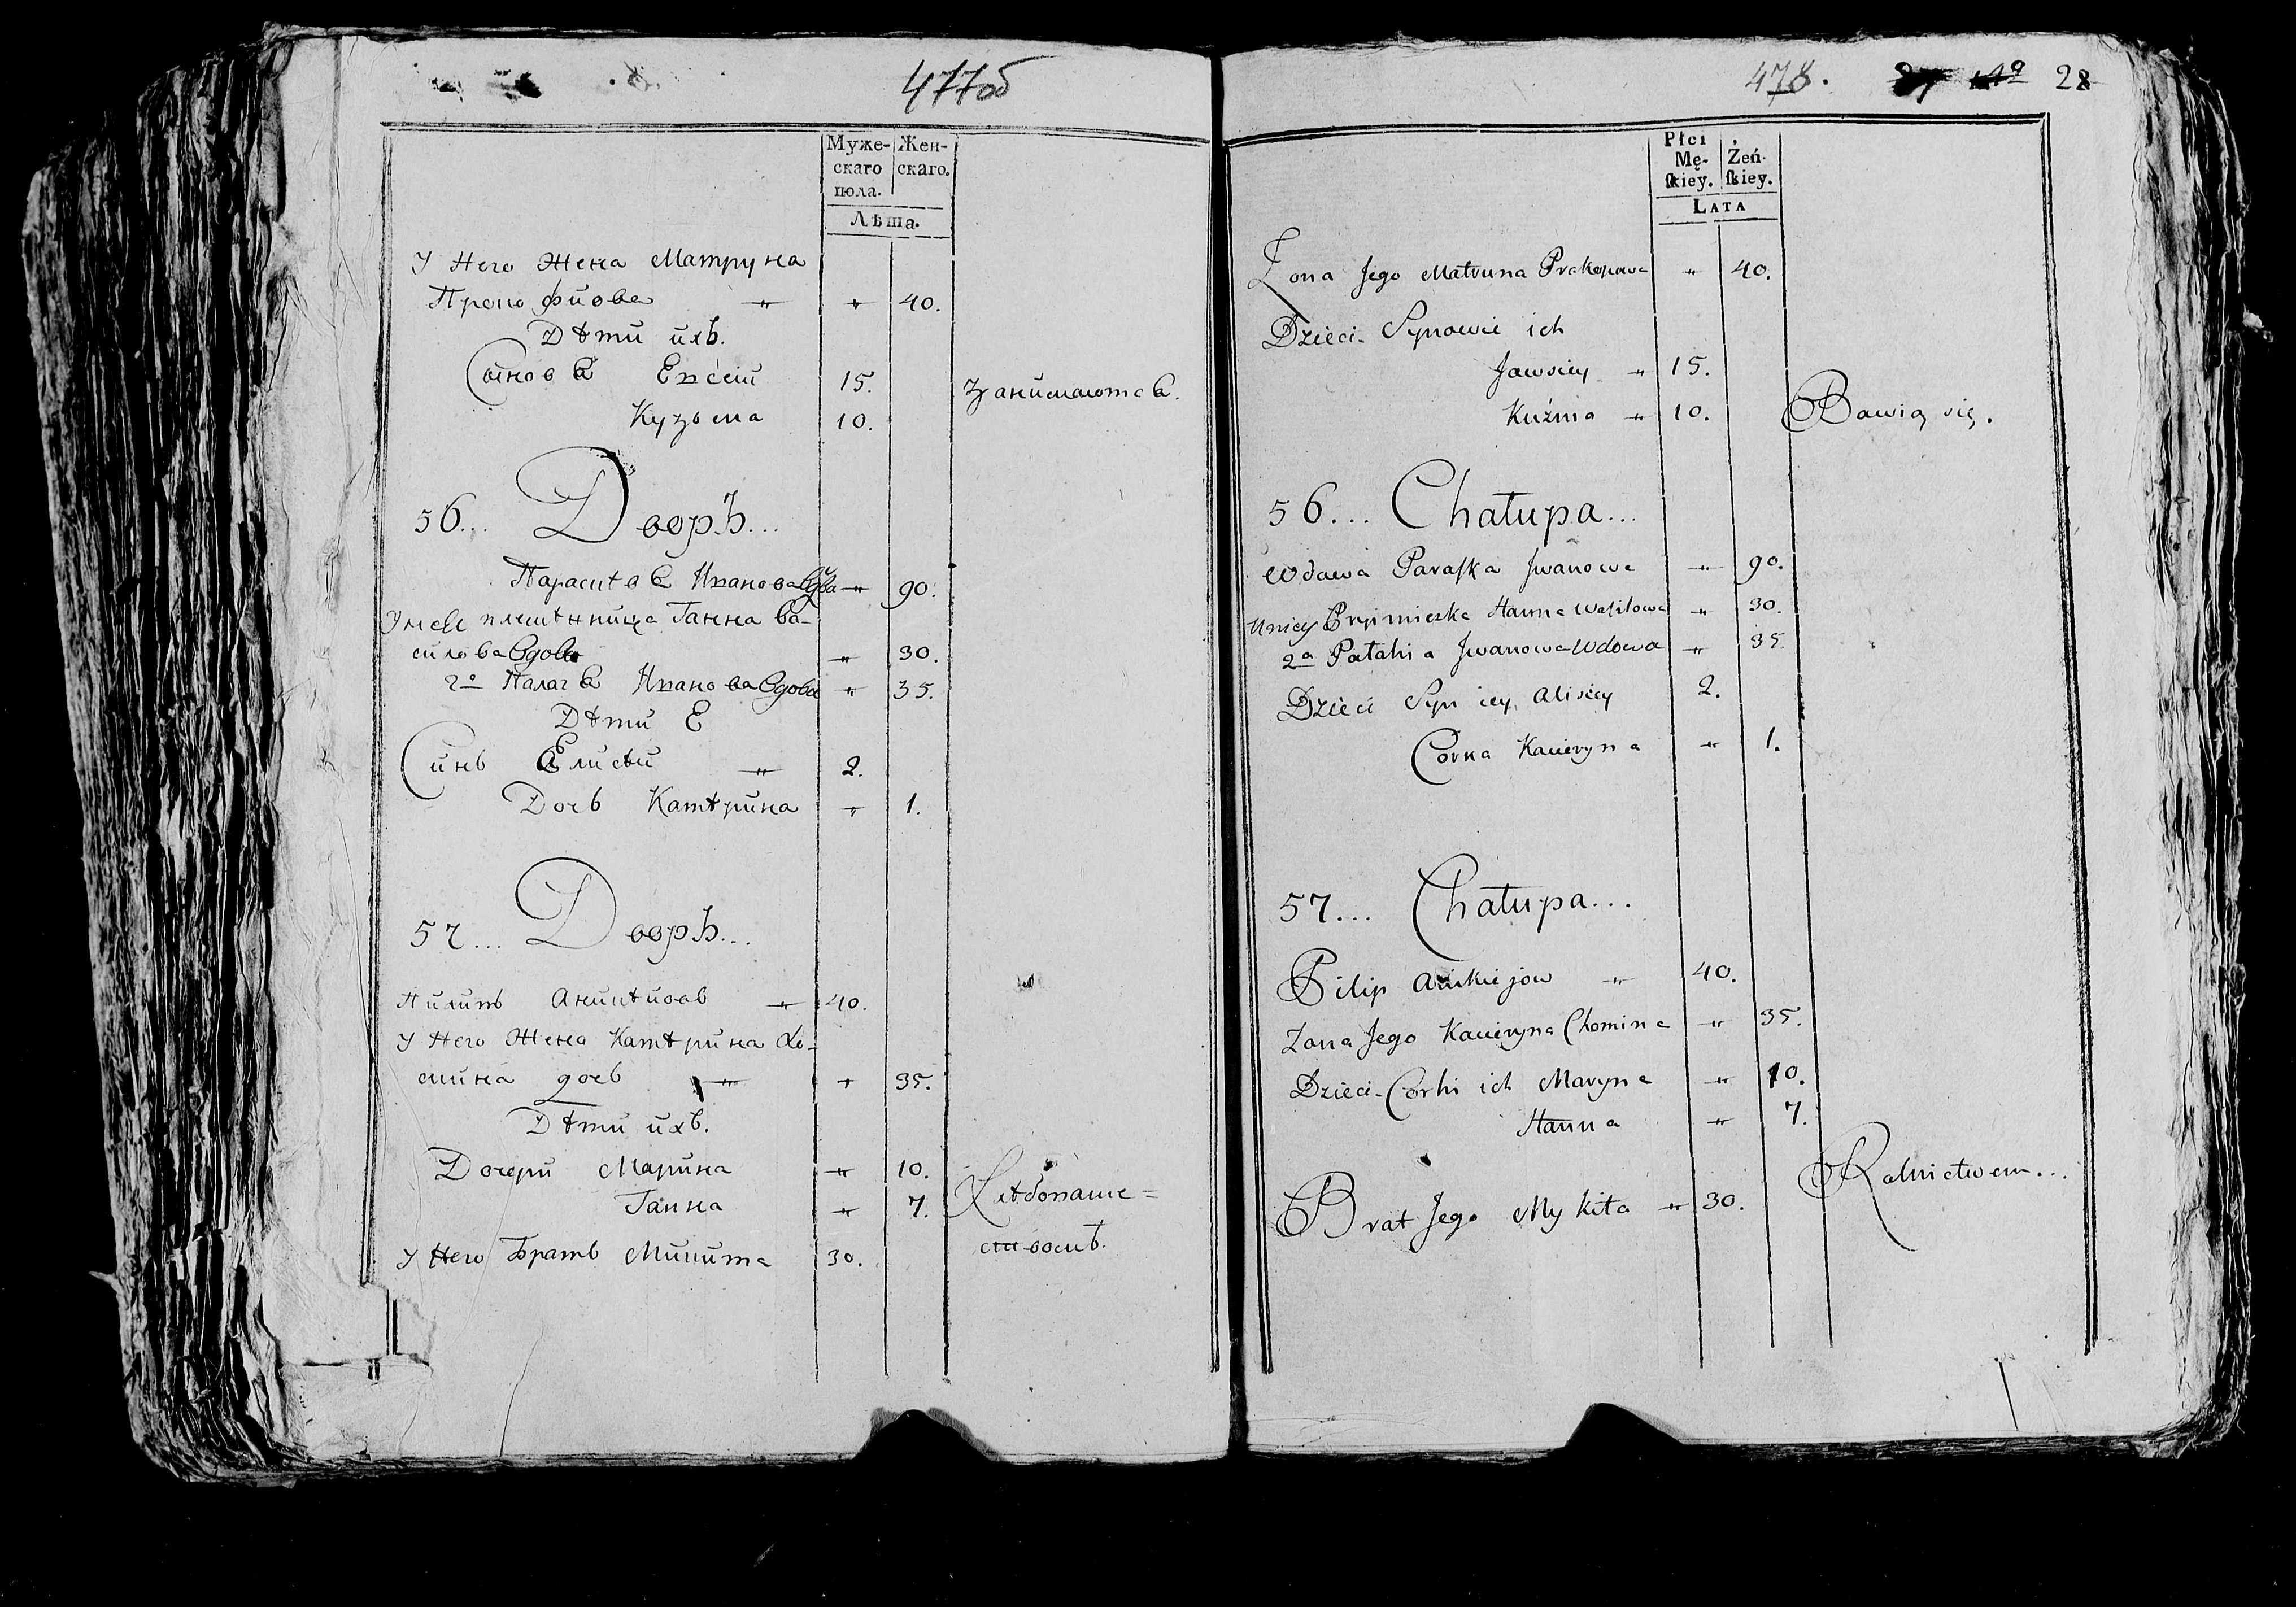 477об
Муже- Жен-
скаго скаго.
пола.
Лѣта.
У Него Жена Матруна
Прокофиова " " 40.
Дѣти ихъ.
Синовѣ 15. Занимаютсѣ.
Кузьма 10.
56... Дворъ...
Параскѣвѣ Иванова Вдова " 90.
Ганна Ва-
силова Вдова " 30.
2а Палагѣ Иванова Вдова " 35.
Дѣти Е
Синъ Елисѣй " 2.
Дочь Катѣрина " 1.
57... Дворъ...
Пилипъ Аникѣиовъ " 40.
У Него Жена Катѣрина Хо-
мина дочь " " 35.
Дѣти ихъ.
Дочери Марина " 10.
Ганна " 7. Хлѣбопаше-
ствомъ.
У Него Братъ Микита 30.
478. 28
Płci
Mę- Żeń-
skiey. skiey.
LATA
Żona Jego Matruna Prokopowa " 40.
Dzieci Synowie ich
Jawsiey " 15.
Kuźma " 10. Bawią się.
56... Chałupa...
Wdowa Paraska Jwanowa " 90.
Uniey Pryimiczka Hanna Wasilowa " 30.
2a Pałahia Jwanowa Wdowa " 35.
Dzieci Syn iey Alisiey 2.
Corka Kacieryna " 1.
57... Chałupa...
Pilip Anikiejow " 40.
Żona Jego Kacieryna Chomina " 35.
Dzieci Corki ich Maryna " 10.
Hanna " 7.
Rolnictwem...
Brat Jego Mykita " 30.